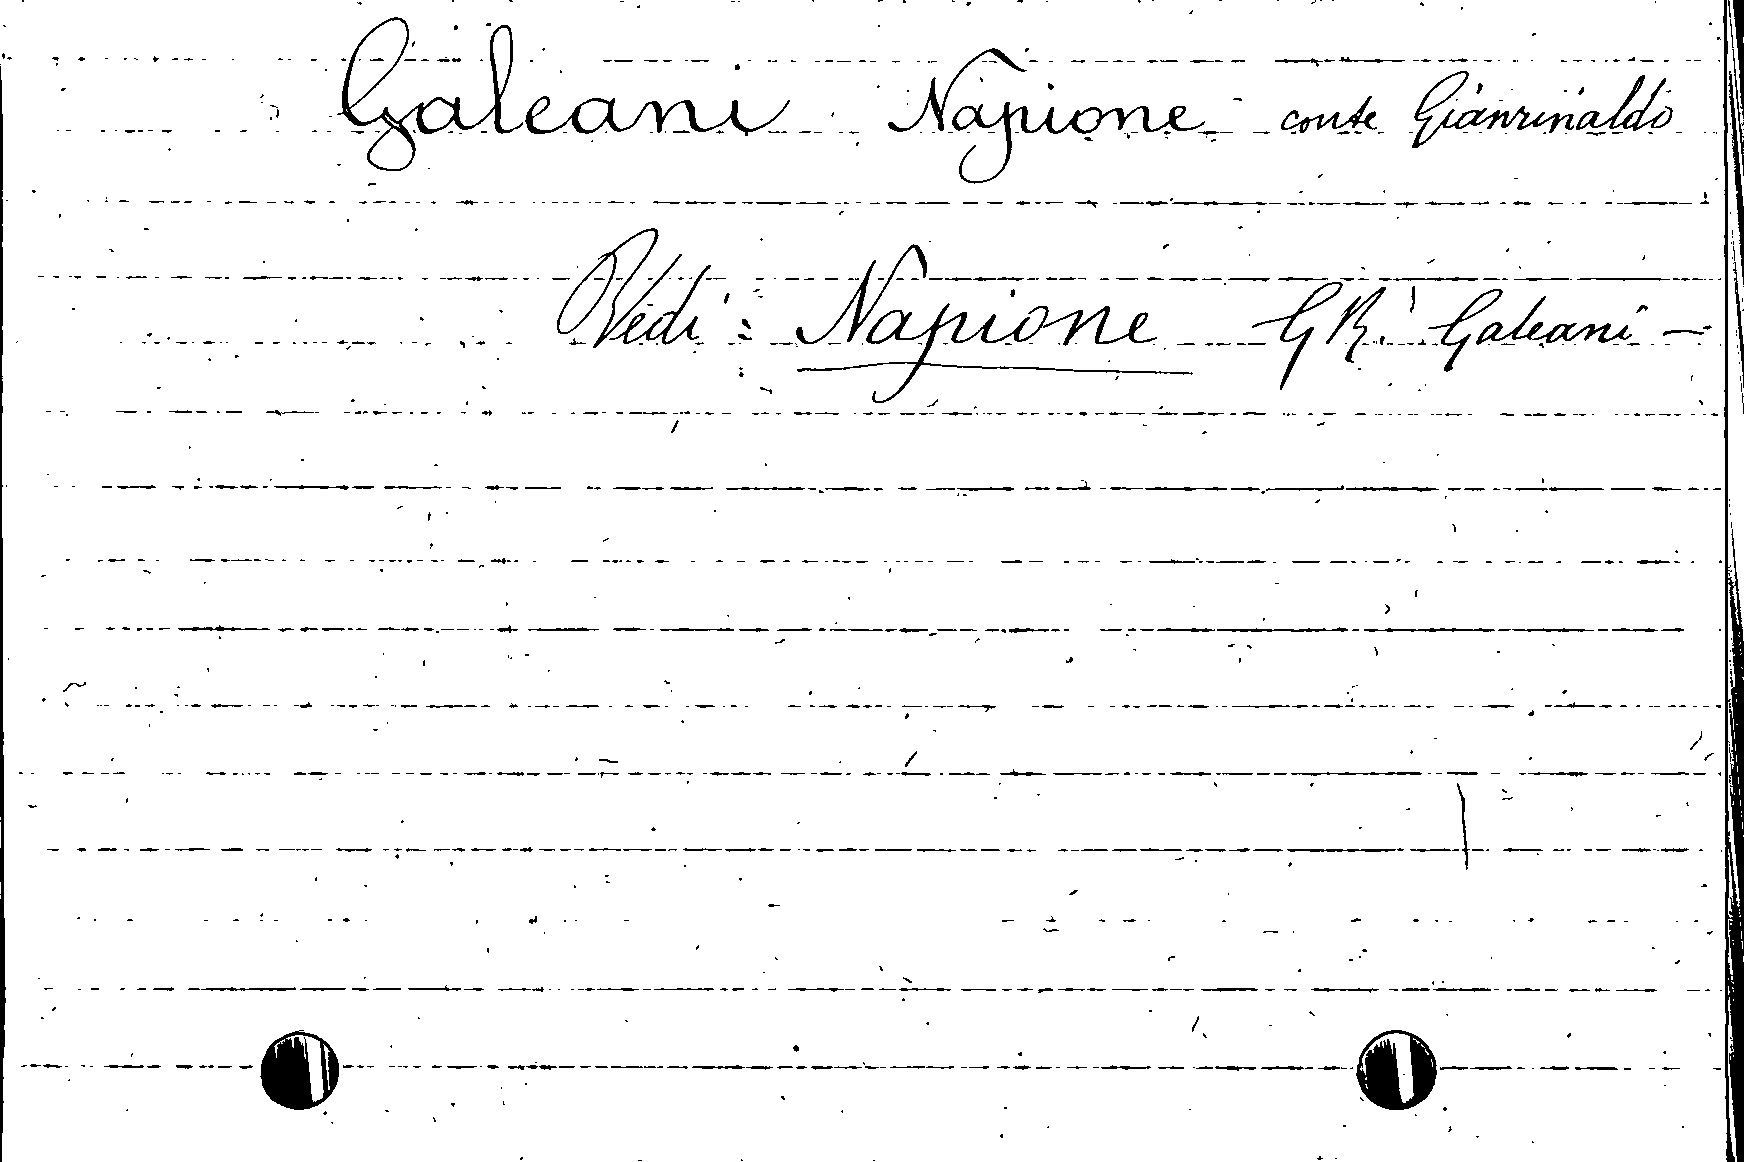 Galeani Napione conte Gianrinaldo
Vedi: Napione G R. Galeani —